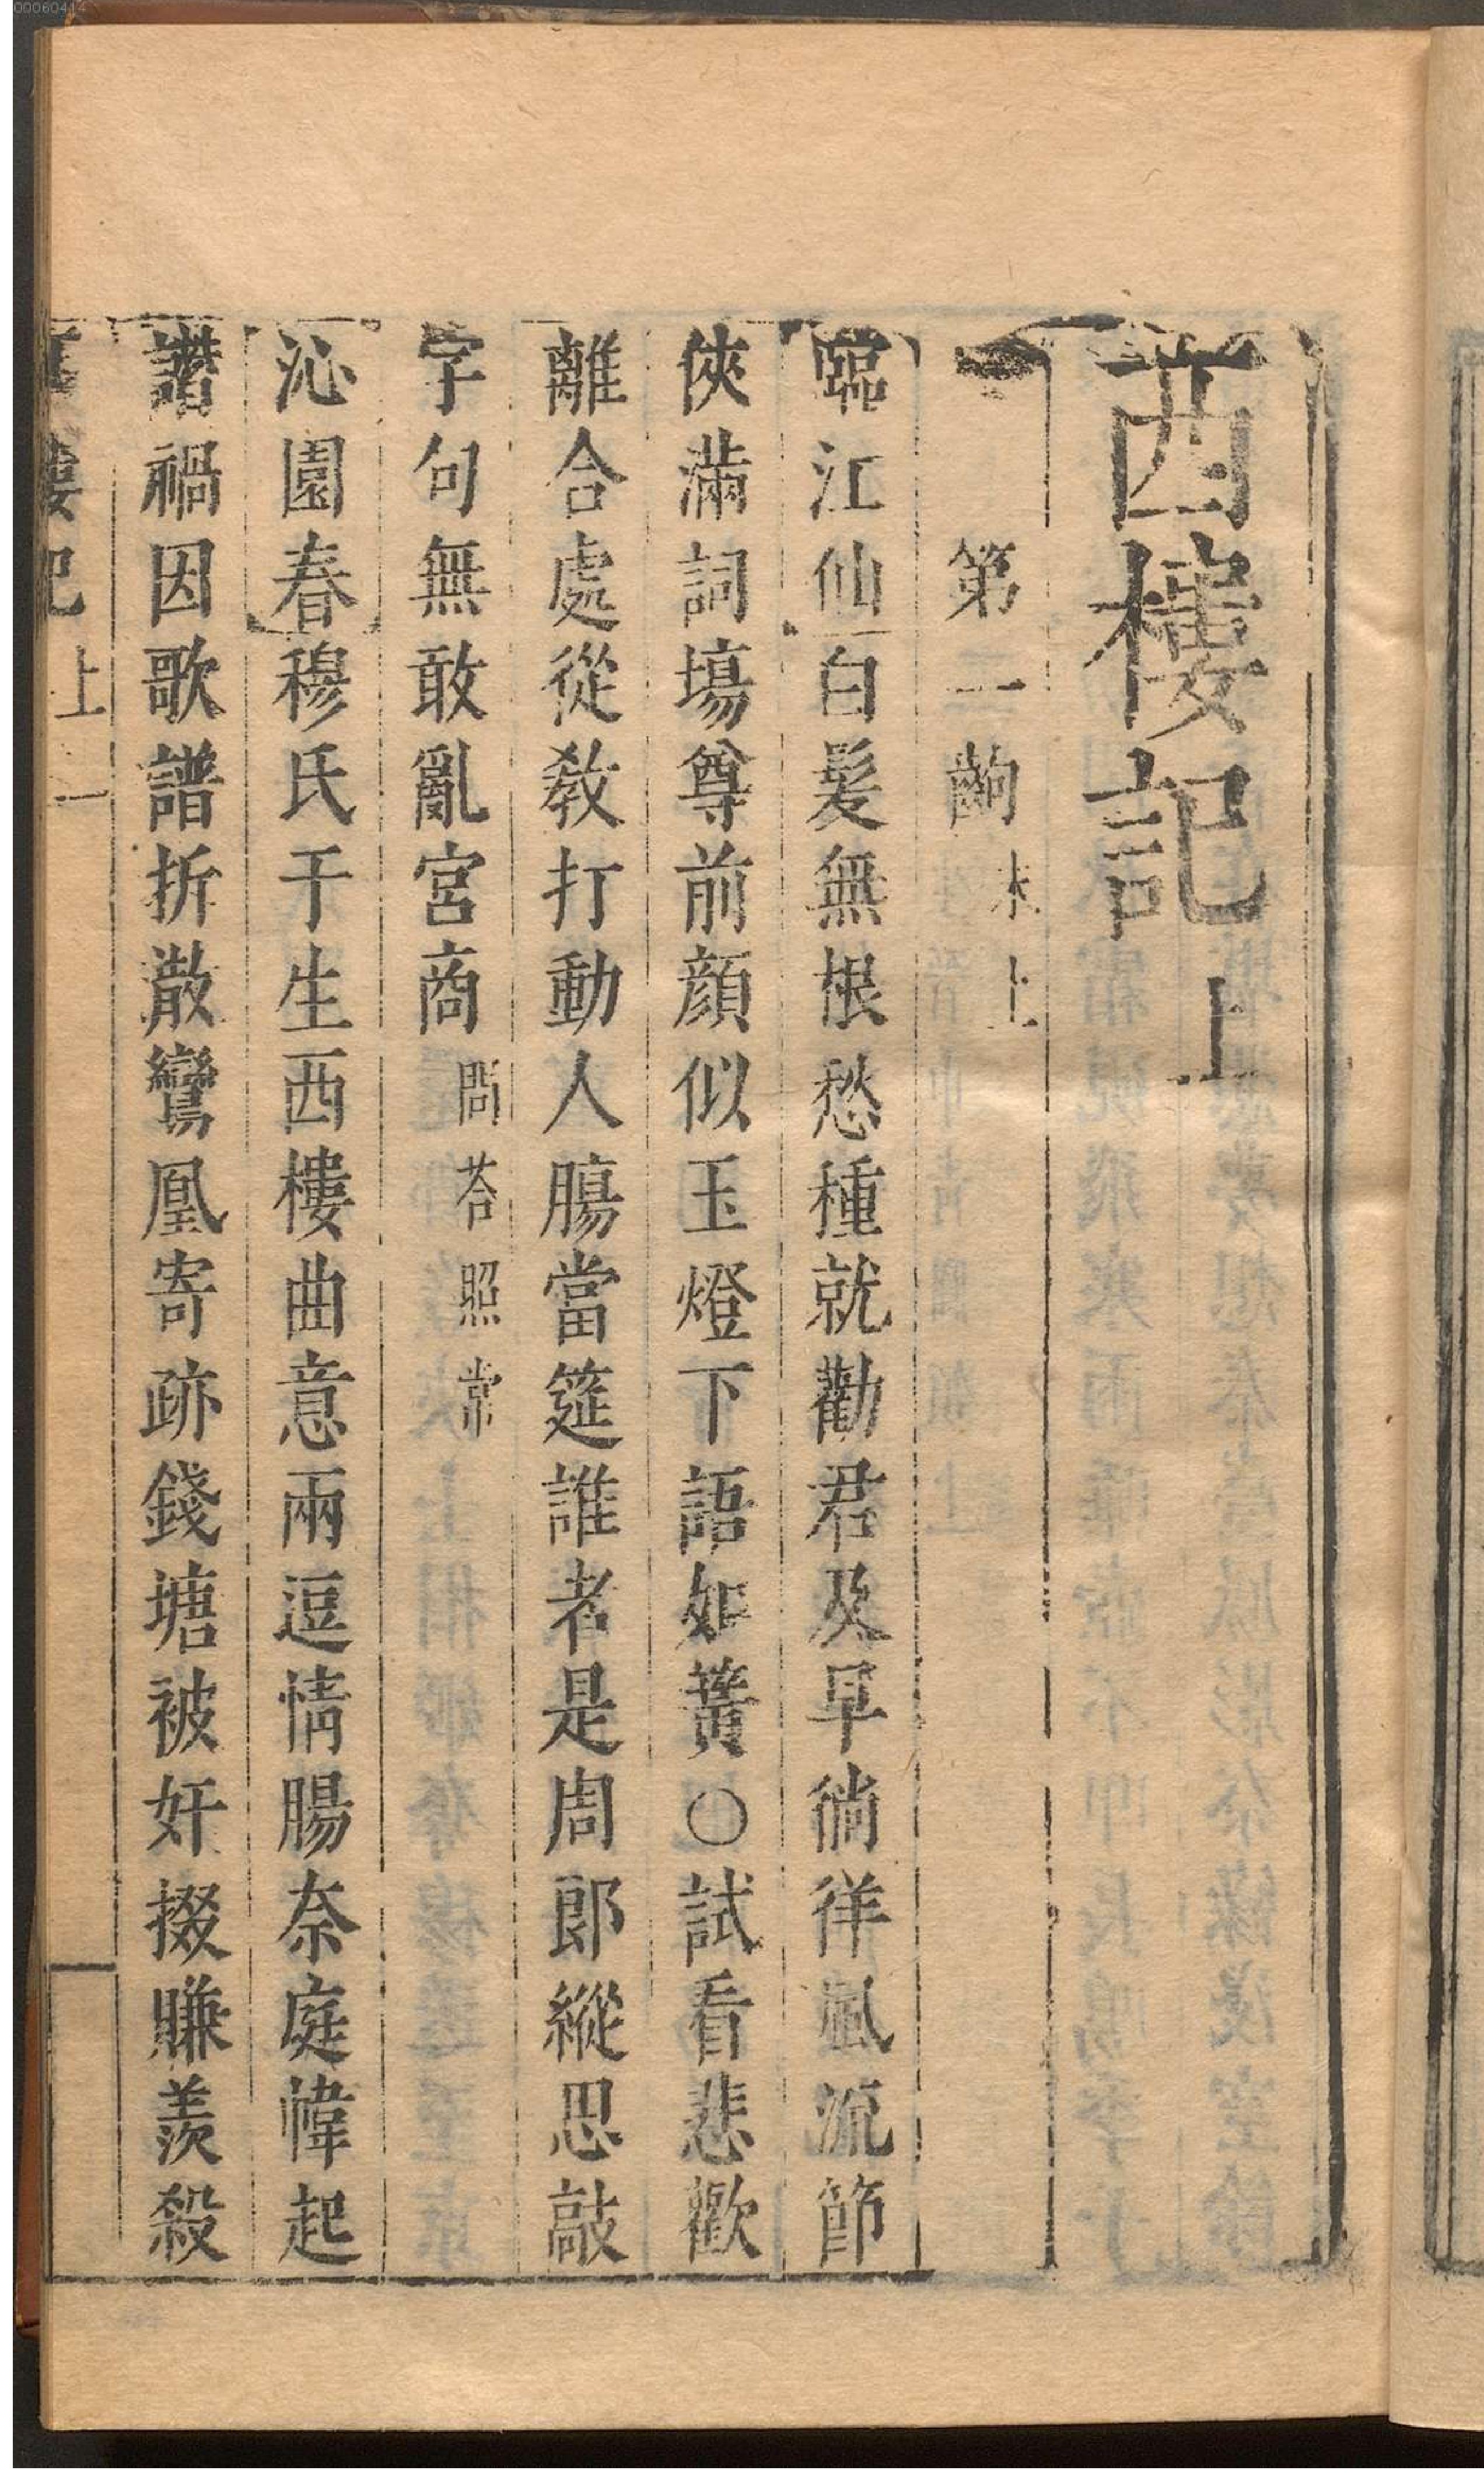 西樓記上
第一齣末上
臨江仙白髮無根愁種就勸君及早徜徉風流節
俠滿詞塲尊前顔似玉燈下語如簧○試看悲歡
離合處從教打動人腸當筵誰者是周郎縱思敲
字句無敢亂宮商問荅照常
沁園春穆氏于生西樓曲意兩逗情腸奈庭幃起
譖禍因歌譜折散鸞凰寄跡錢塘被奸掇賺羨殺
樓記上一
00060414